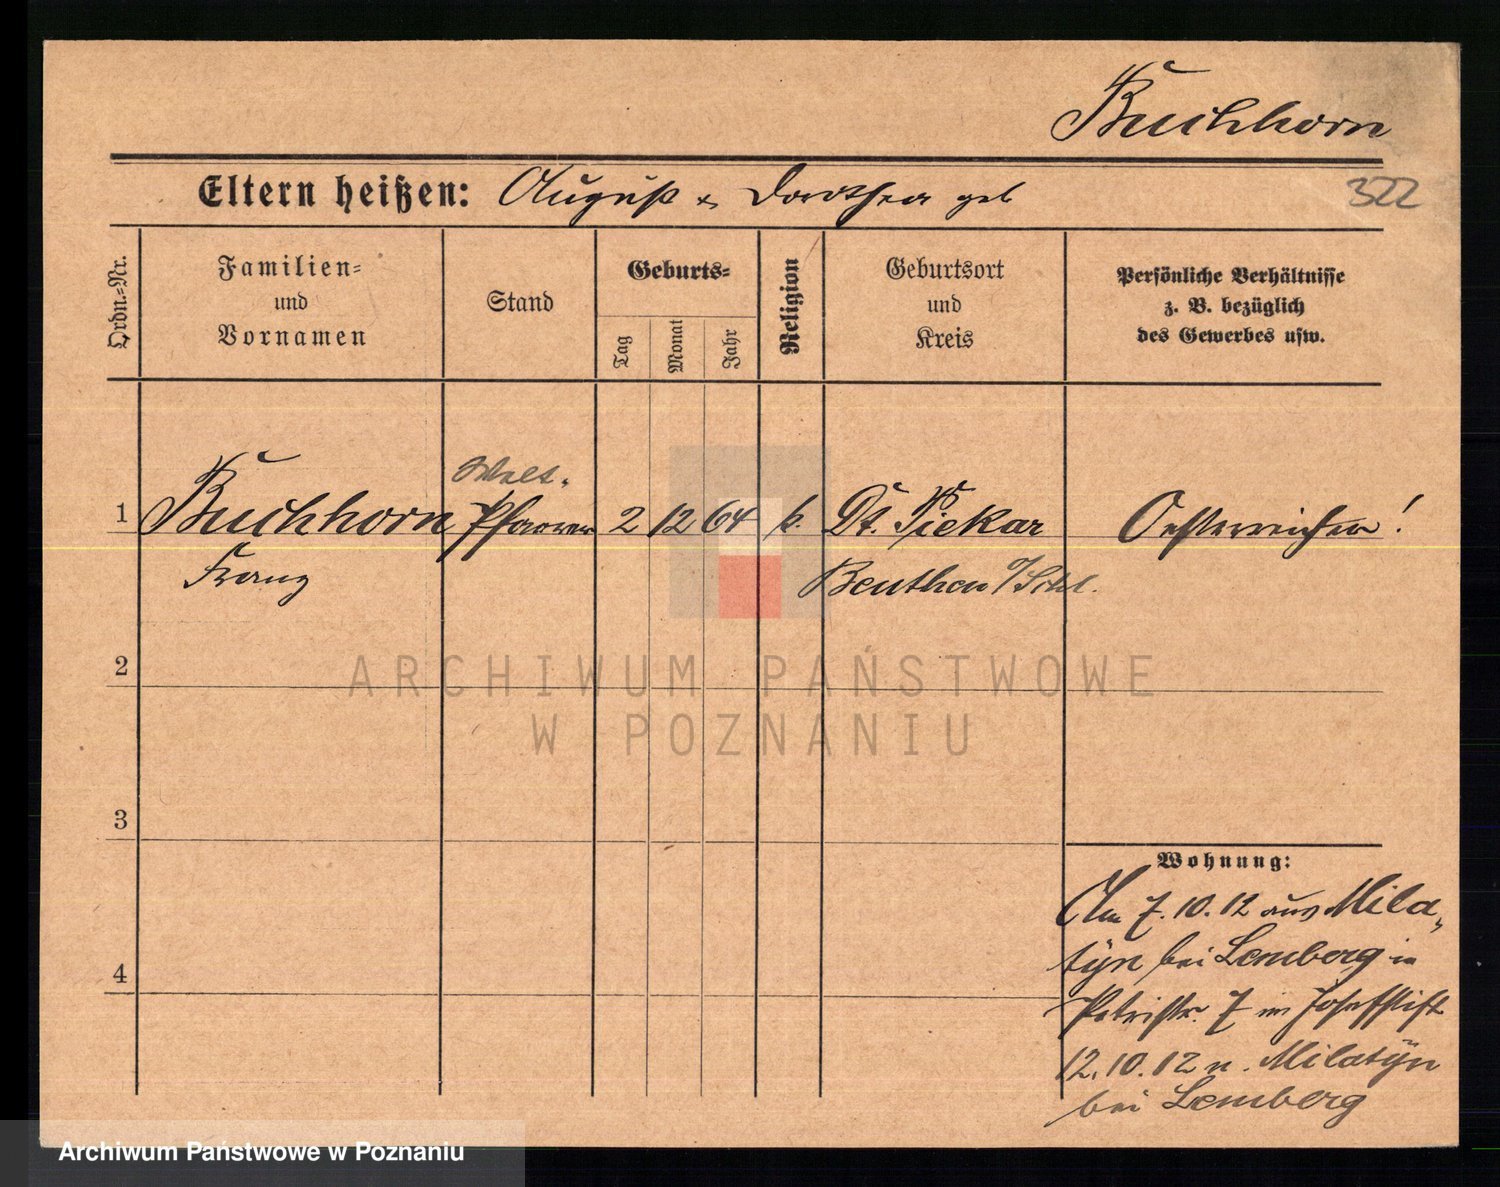 Buchhorn
Eltern heißen: August & Dorothea geb
322
Ordn.-Nr.
Familien-
und
Vornamen
Stand
Geburts-
Tag
Monat
Jahr
Religion
Geburtsort
und
Kreis
Persönliche Verhältnisse
z. B. bezüglich
des Gewerbes usw.
Welt-
1 Buchhorn Pfarrer 2 12 64 k. Dt. Piekar Oesterreicher!
Franz Beuthen O/Schl.
2
ARCHIWUM PAŃSTWOWE
W POZNANIU
3
Wohnung:
Am 7.10.12 aus Mila-
4 tyn bei Lemberg in
Petristr. 7 im Josefstift
12.10.12 n. Milatyn
bei Lemberg
Archiwum Państwowe w Poznaniu